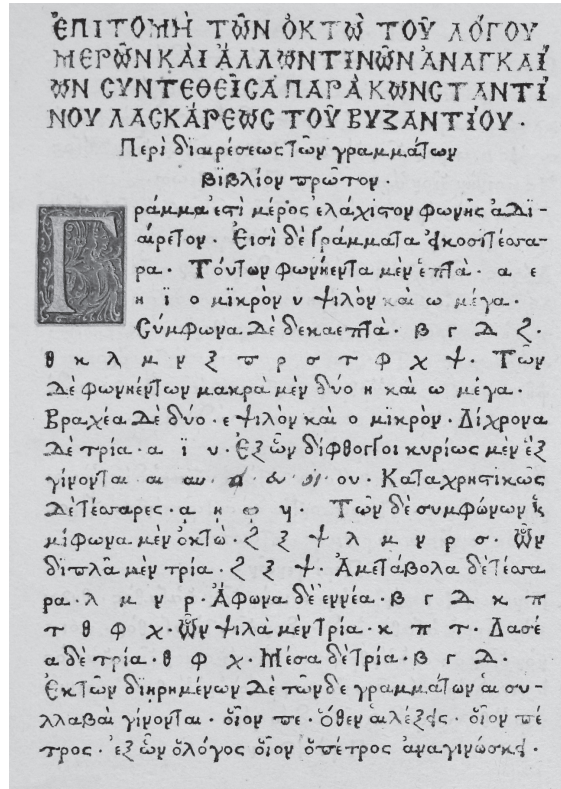 ἘΠΙΤΟΜῊ ΤΩ͂Ν ὈΚΤῺ ΤΟΥ͂ ΛΌΓΟΥ
ΜΕΡΩ͂Ν ΚΑῚ ἌΛΛΩΝ ΤΙΝΩ͂Ν ἈΝΑΓΚΑΊ
ΩΝ ϹΥΝΤΕΘΕΙ͂ϹΑ ΠΑΡᾺ ΚΩΝϹΤΑΝΤΊ
ΝΟΥ ΛΑϹΚΆΡΕΩϹ ΤΟΥ͂ ΒΥΖΑΝΤΊΟΥ·
Περὶ διαιρέσεως τῶν γραμμάτων
βϊβλίον πρῶτον·
Γράμμα ἐστὶ μέρος ἐλάχιστον φωνῆς ἀδι-
αίρετον· Εἰσὶ δὲ Γράμματα εἰκοσιτέσσα-
ρα· Τούτων φωνήεντα μὲν ἑπτὰ· α ε
η ϊ ο μϊκρὸν υ ψιλὸν καὶ ω μέγα·
Σύμφωνα δὲ δεκαεπτὰ· β γ δ ζ·
θ κ λ μ ν ξ π ρ σ τ φ χ ψ· Τῶν
δὲ φωνηέντων μακρὰ μὲν δύο η καὶ ω μέγα·
Βραχέα δὲ δύο· ε ψιλὸν καὶ ο μικρὸν· Δίχρονα
δὲ τρία· α ϊ υ· Ἐξ ὧν δίφθογγοι κυρίως μὲν ἓξ
γίνονται αι αυ ει ευ οι ου· Καταχρηστικῶς
δὲ τέσσαρες· ᾳ ῃ ῳ υι· Τῶν δὲ συμφώνων ἡ
μίφωνα μὲν ὀκτὼ· ζ ξ ψ λ μ ν ρ σ· ὧν
διπλᾶ μὲν τρία· ζ ξ ψ· Ἀμετάβολα δὲ τέσσα
ρα· λ μ ν ρ· Ἄφωνα δὲ ἐννέα· β γ δ κ π
τ θ φ χ· ὧν ψιλὰ μὲν τρία· κ π τ· Δασέ
α δὲ τρία· θ φ χ· Μέσα δὲ τρία· β γ δ·
Ἐκ τῶν διῃρημένων δὲ τῶνδε γραμμάτων αἱ συ-
λλαβαὶ γίνονται· οἷον πε· ὅθεν αἱ λέξεις· οἷον πέ
τρος· ἐξ ὧν ὁ λόγος οἷον ὁ πέτρος ἀναγινώσκει·